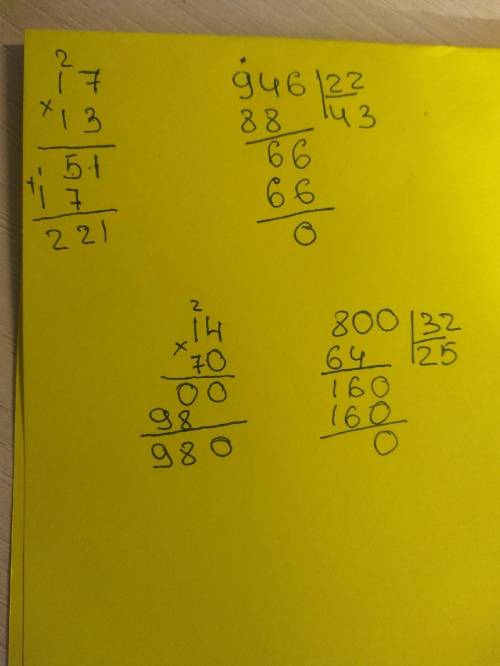 2
17
× 13
51
+ 1
17
221
946 | 22
88 43
66
66
0
2
14
× 70
00
98
980
800 | 32
64 25
160
160
0